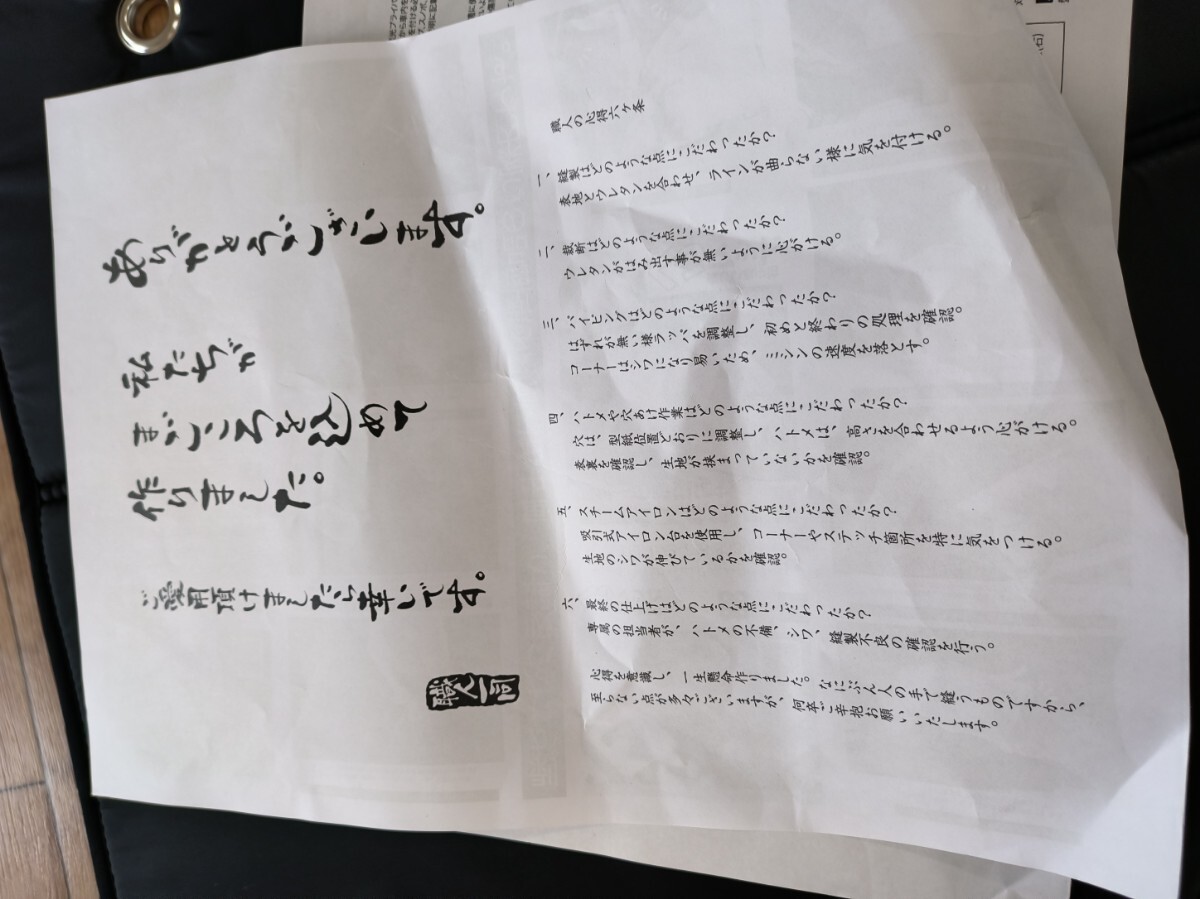 ありがとうございます。
私たちが
まごころを込めて
作りました。
ご愛用頂けましたら幸いです。
職人一同
職人の心得六ケ条
一、縫製はどのような点にこだわったか？
表地とウレタンを合わせ、ラインが曲らない様に気を付ける。
二、裁断はどのような点にこだわったか？
ウレタンがはみ出す事が無いように心がける。
三、パイピングはどのような点にこだわったか？
はずれが無い様ラッパを調整し、初めと終わりの処理を確認。
コーナーはシワになり易いため、ミシンの速度を落とす。
四、ハトメや穴あけ作業はどのような点にこだわったか？
穴は、型紙位置どおりに調整し、ハトメは、高さを合わせるよう心がける。
表裏を確認し、生地が挟まっていないかを確認。
五、スチームアイロンはどのような点にこだわったか？
吸引式アイロン台を使用し、コーナーやステッチ箇所を特に気をつける。
生地のシワが伸びているかを確認。
六、最終の仕上げはどのような点にこだわったか？
専属の担当者が、ハトメの不備、シワ、縫製不良の確認を行う。
心得を意識し、一生懸命作りました。なにぶん人の手で縫うものですから、
至らない点が多々ございますが、何卒ご辛抱お願いいたします。